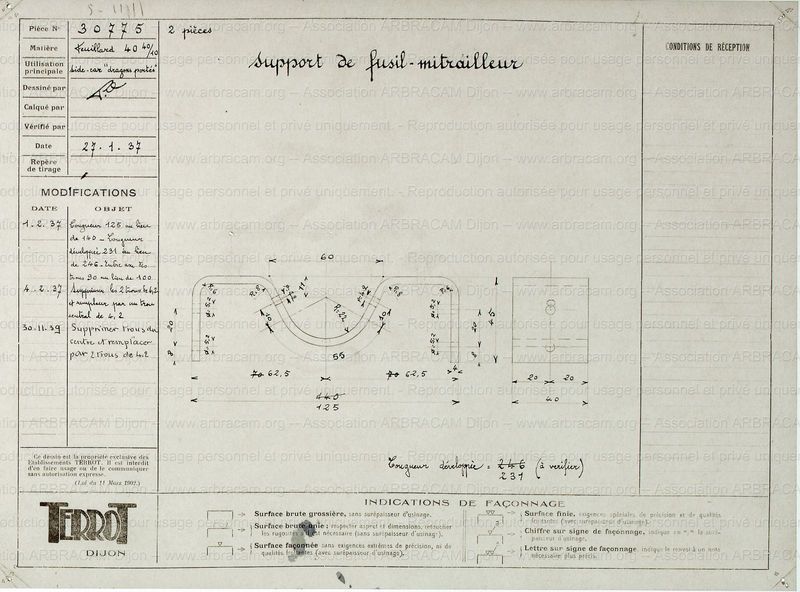 Pièce N° 30775
2 pièces
Matière Feuillard 40 40/10
Utilisation principale side-car "dragons portés"
Dessiné par
Calqué par
Vérifié par
Date 27.1.37
Repère de tirage
Support de fusil-mitrailleur
CONDITIONS DE RÉCEPTION
MODIFICATIONS
DATE OBJET
1.2.37 Longueur 125 au lieu
de 140 - Longueur
développée 231 au lieu
de 246 - Entre
90 au lieu de 100
4.2.37 Supprimer les 2 trous de 4,2
et remplacer par un trou
central de 4,2
30.11.39 Supprimer trous du
centre et remplacer
par 2 trous de 4.2
60
R=22
55
70 62,5
70 62,5
140
125
20
20
40
Longueur développée = 246 (à vérifier)
231
Ce dessin est la propriété exclusive des
Etablissements TERROT. Il est interdit
d'en faire usage ou de le communiquer
sans autorisation expresse.
(Loi du 11 Mars 1902.)
TERROT
DIJON
INDICATIONS DE FAÇONNAGE
Surface brute grossière, sans surépaisseur d'usinage.
Surface brute unie; respecter aspect et dimensions, retoucher
les rugosités nécessaire (sans surépaisseur d'usinage).
Surface façonnée sans exigences extrêmes de précision, ni de
qualités (avec surépaisseur d'usinage).
Surface finie, exigences spéciales de précision et de qualités
(avec surépaisseur d'usinage).
Chiffre sur signe de façonnage, indique en m/m la surépaisseur d'usinage.
Lettre sur signe de façonnage indique le renvoi à une note
nécessaire plus précis.
www.arbracam.org -- Association ARBRACAM Dijon -- www.arbracam.org
Reproduction autorisée pour usage personnel et privé uniquement.